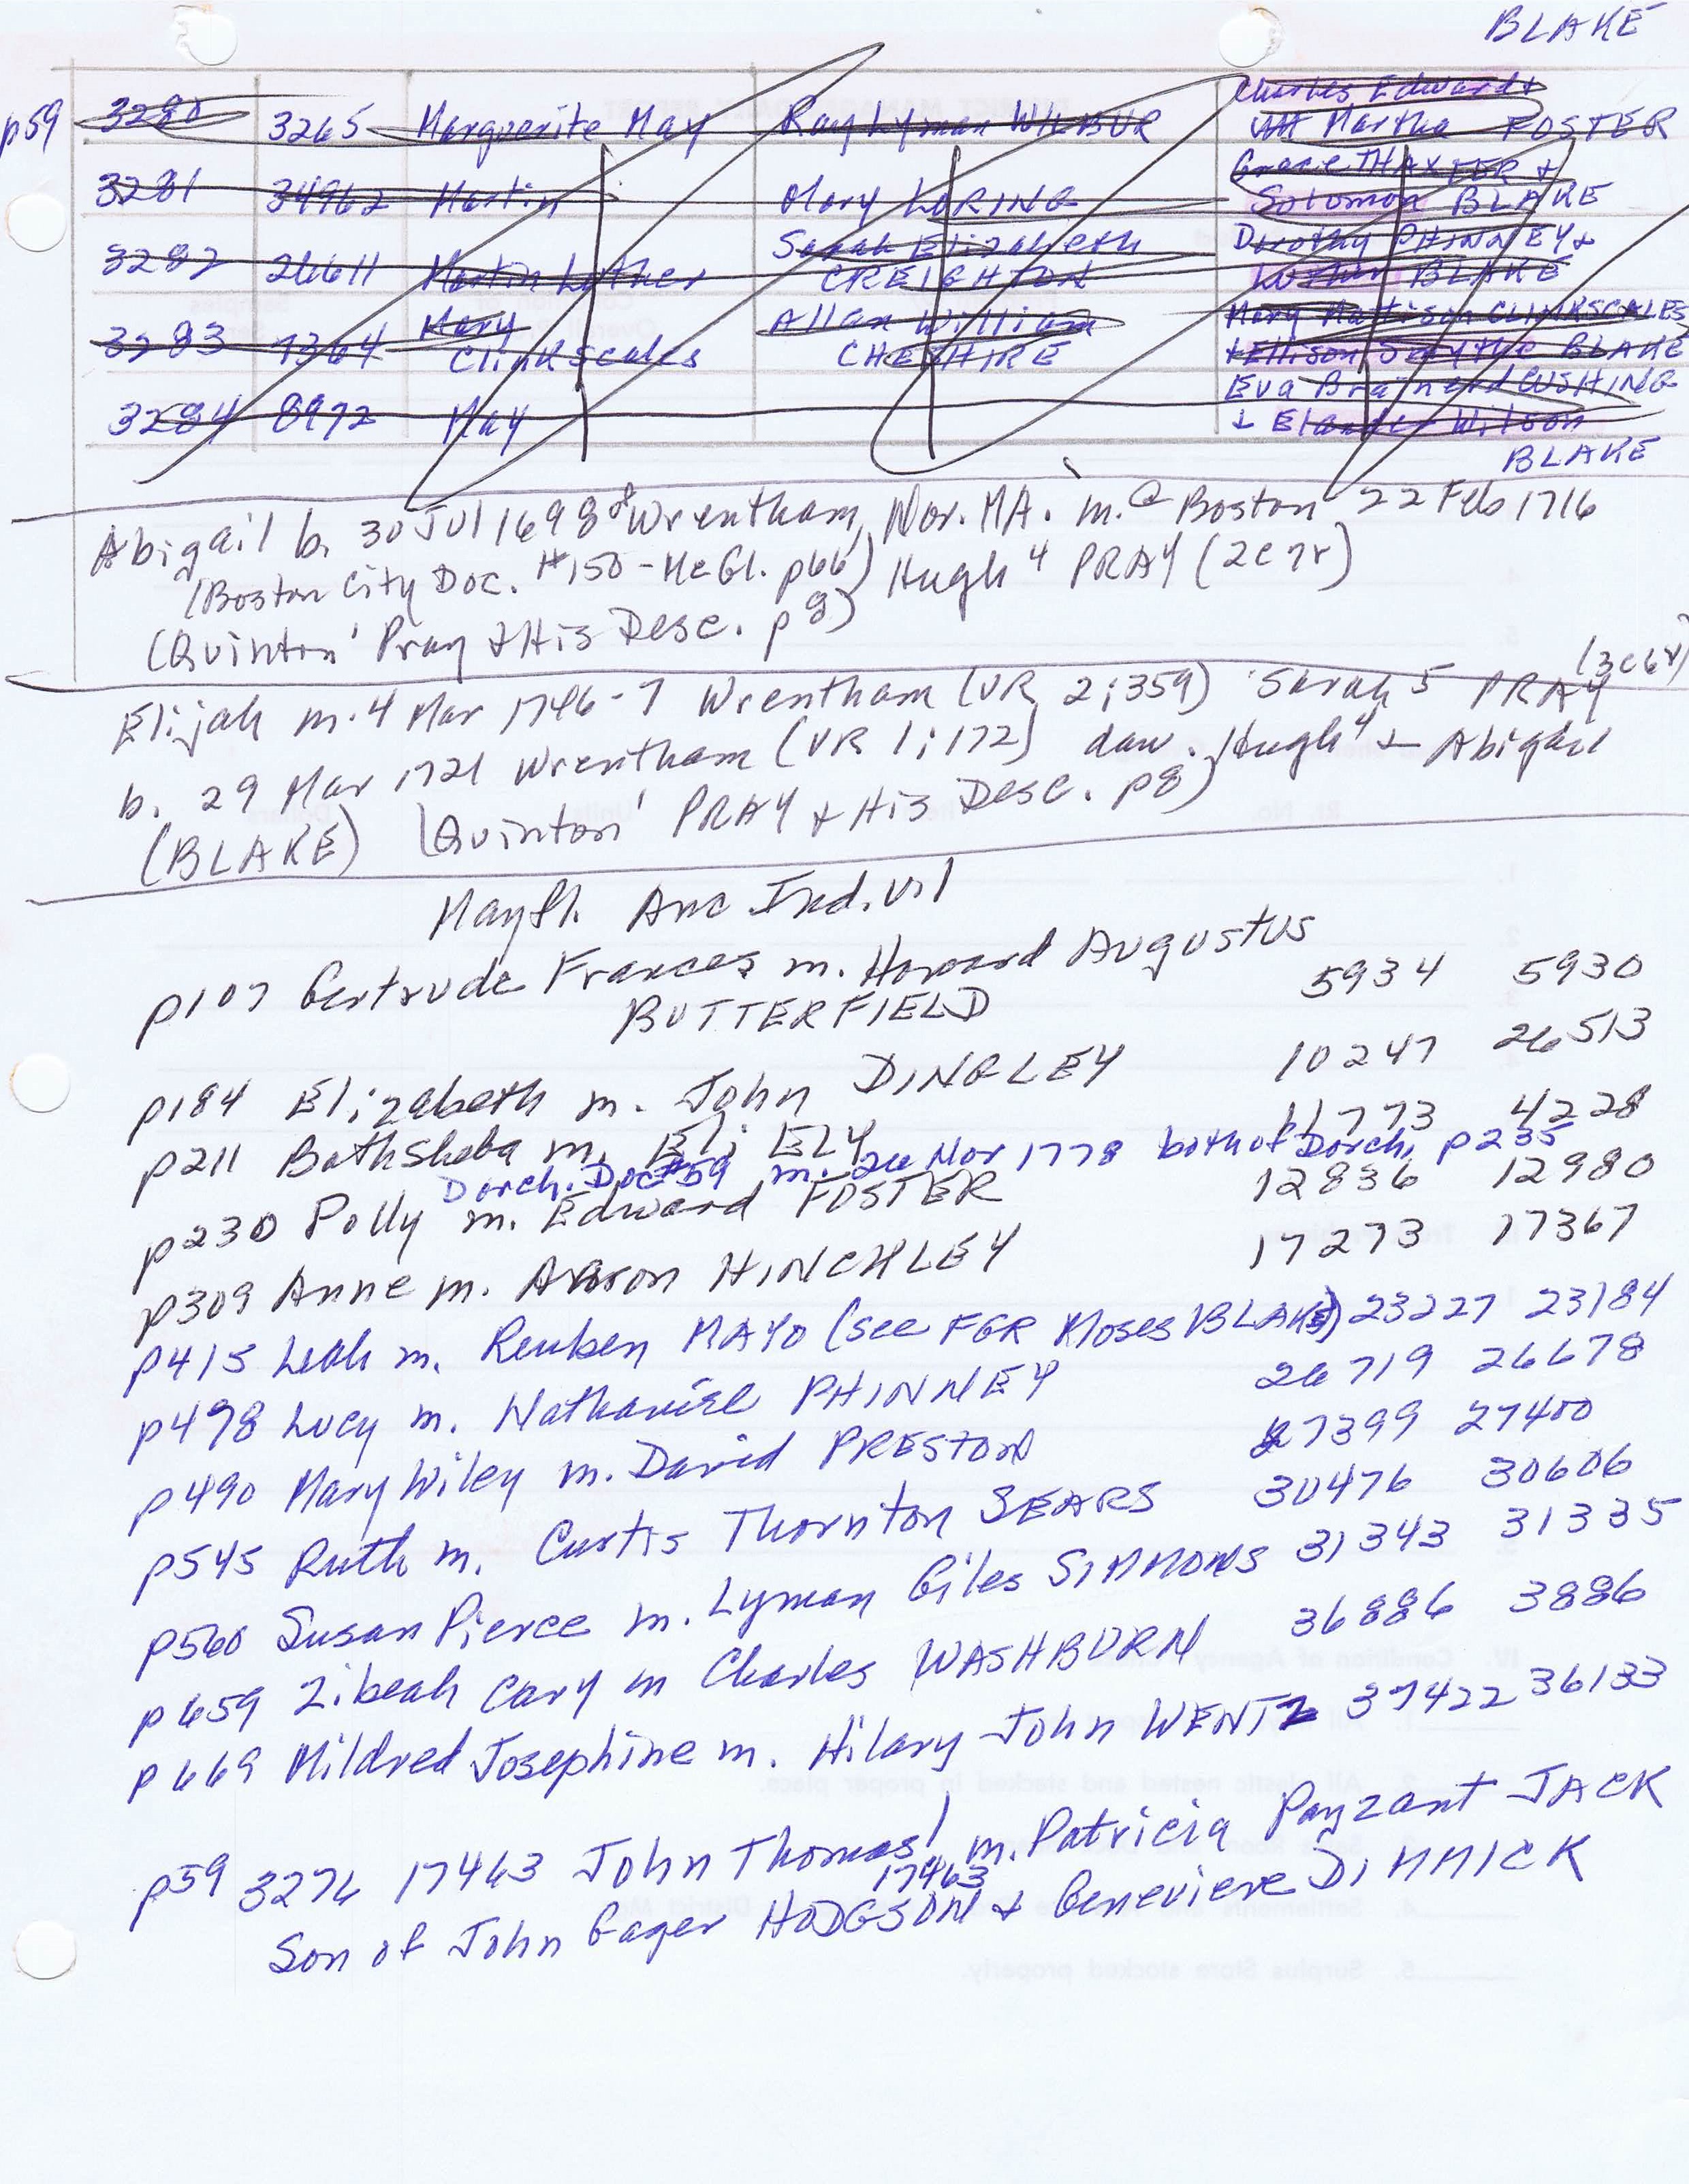 BLAKE
p59 3280 3265 Marguerite May Ray Lyman WILBUR Charles Edward +
Martha FOSTER
3281 34962 Martin Mary LORING Gracie THAXTER +
Solomon BLAKE
3282 26611 Martin Luther Sarah Elizabeth
CREIGHTON Dorothy PHINNEY +
Luther BLAKE
3283 7364 Mary
Clinkscales Allan William
CHESHIRE Mary Mattison CLINKSCALES
+ Ellison Smythe BLAKE
3284 8972 May Eva Brainerd CUSHING
+ Elander Wilson
BLAKE
Abigail b. 30 Jul 1698 @ Wrentham, Nor. MA. m. @ Boston 22 Feb 1716
(Boston City Doc. #150 - McGl. p66) Hugh 4 PRAY (2c7r)
(Quinton' Pray & His Desc. p8)
(3c6r)
Elijah m. 4 Mar 1746-7 Wrentham (VR 2;359) Sarah 5 PRAY
b. 29 Mar 1721 Wrentham (VR 1;172) dau. Hugh 4 + Abigail
(BLAKE) (Quinton' PRAY + His Desc. p8)
Mayfl. Anc Ind. v1
p107 Gertrude Frances m. Howard Augustus
BUTTERFIELD 5934 5930
p184 Elizabeth m. John DINGLEY 10247 26513
p211 Bathsheba m. Eli ELY 11773 4228
Dorch. Doc #59 m. 26 Nov 1778 both of Dorch. p235
p230 Polly m. Edward FOSTER 12836 12980
p309 Anne m. Aaron HINCHLEY 17273 17367
p415 Leah m. Reuben MAYO (see FGR Moses BLAKE) 23227 23184
p478 Lucy m. Nathaniel PHINNEY 26719 26678
p490 Mary Wiley m. David PRESTON 27399 27400
p545 Ruth m. Curtis Thornton SEARS 30476 30606
p560 Susan Pierce m. Lyman Giles SIMMONS 31343 31335
p659 Zibeah Cary m Charles WASHBURN 36886 3886
p669 Mildred Josephine m. Hilary John WENTZ 37422 36133
p59 3276 17463 John Thomas m. Patricia Payzant JACK
17463
Son of John Gager HODGSON + Genevieve DIMMICK